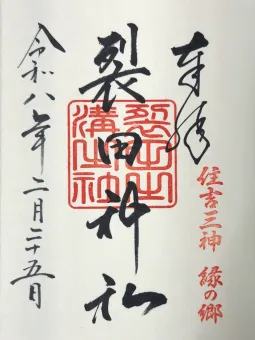 奉拝
住吉三神 縁の郷
裂田神社
裂田
溝
神社
令和八年二月二十五日